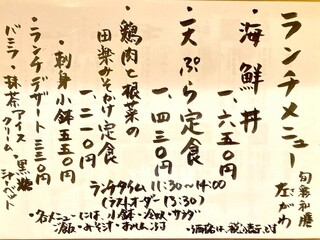 ランチメニュー
旬菜和膳
左がわ
さ
・海鮮丼
一、六五〇円
・天ぷら定食
一、四三〇円
・鶏肉と根菜の
田楽みそかけ定食
一、二一〇円
・刺身小鉢五五〇円
・ランチデザート三三〇円
バニラ・抹茶アイス・黒糖
クリーム・シャーベット
ランチタイム 11:30〜14:00
(ラストオーダー13:30)
・各メニューには、小鉢・冷奴・サラダ
ご飯・みそ汁・お新香付